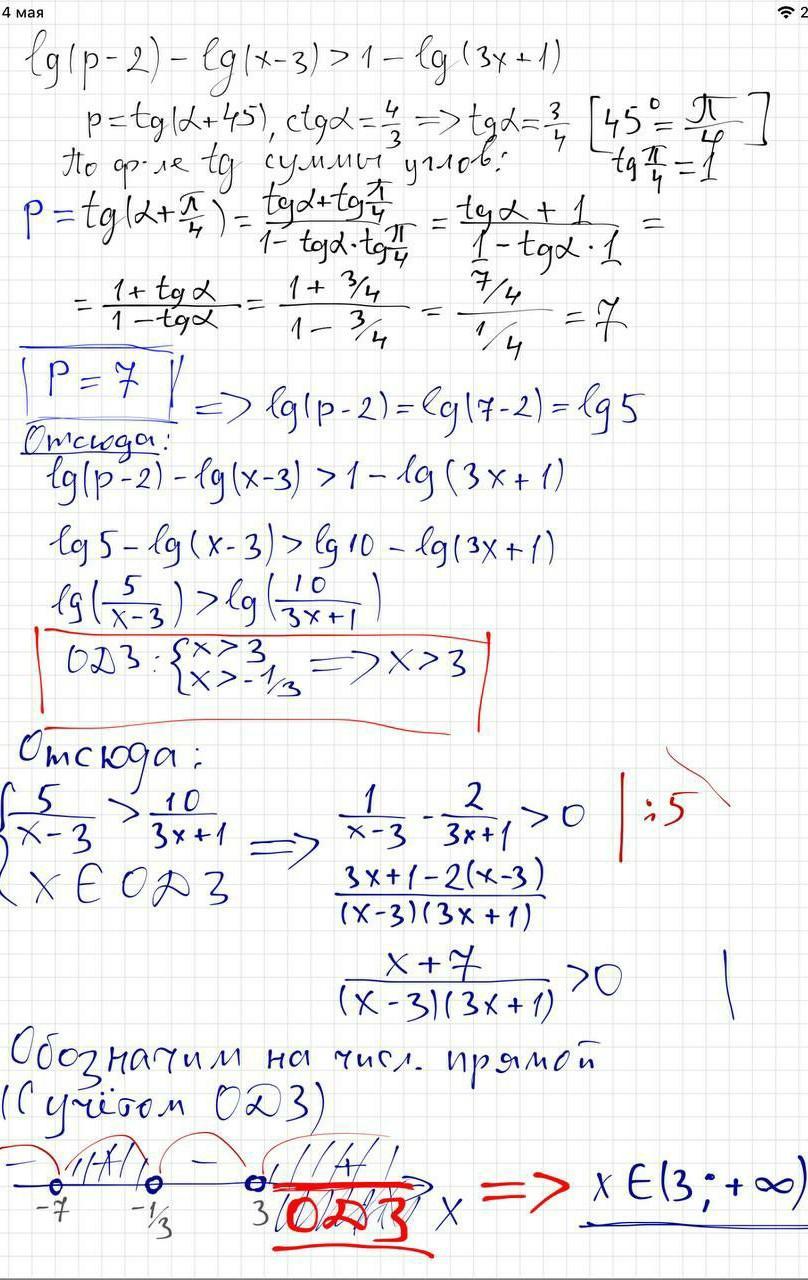 4 мая
2
lg(p-2) - lg(x-3) > 1 - lg(3x+1)
p = tg(α+45), ctgα = 4/3 => tgα = 3/4 [45° = π/4]
По ф-ле tg суммы углов: tg π/4 = 1
P = tg(α + π/4) = (tgα + tg π/4)/(1 - tgα·tg π/4) = (tgα + 1)/(1 - tgα·1) =
= (1 + tgα)/(1 - tgα) = (1 + 3/4)/(1 - 3/4) = (7/4)/(1/4) = 7
P = 7 => lg(p-2) = lg(7-2) = lg5
Отсюда:
lg(p-2) - lg(x-3) > 1 - lg(3x+1)
lg5 - lg(x-3) > lg10 - lg(3x+1)
lg(5/(x-3)) > lg(10/(3x+1))
ОДЗ: { x > 3
x > -1/3 => x > 3
Отсюда:
{ 5/(x-3) > 10/(3x+1) => 1/(x-3) - 2/(3x+1) > 0 | :5
x ∈ ОДЗ
(3x+1-2(x-3))/((x-3)(3x+1))
(x+7)/((x-3)(3x+1)) > 0 |
Обозначим на числ. прямой
(С учётом ОДЗ)
- + - +
-7 -1/3 3 ОДЗ x => x ∈ (3; +∞)